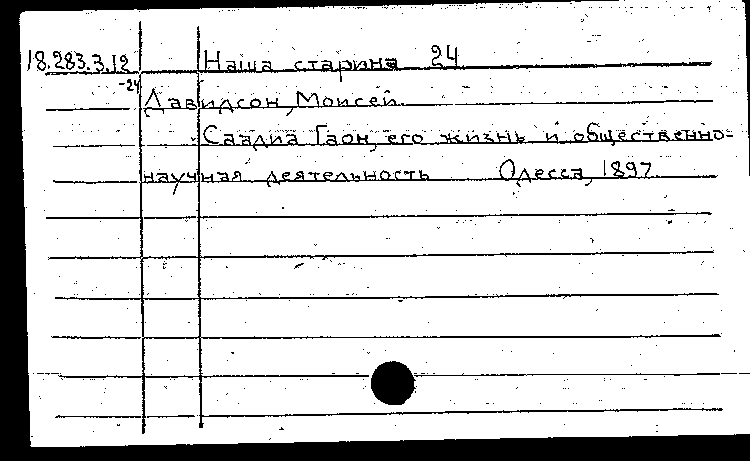 18.283.3.12 Наша старина 24
-24 Давидсон, Моисей.
Саадиа Гаон, его жизнь и общественно-
научная деятельность Одесса, 1897